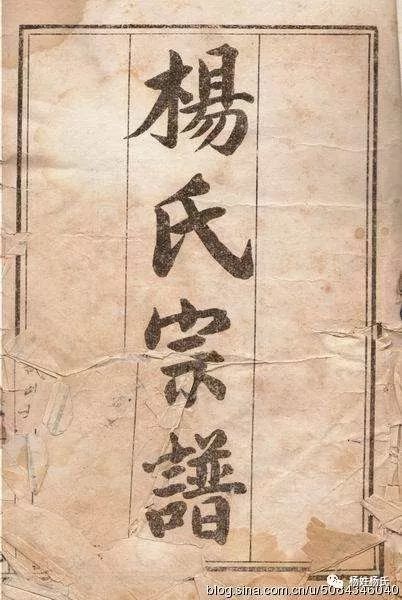 楊氏宗譜
杨姓杨氏
blog.sina.com.cn/u/5084346040